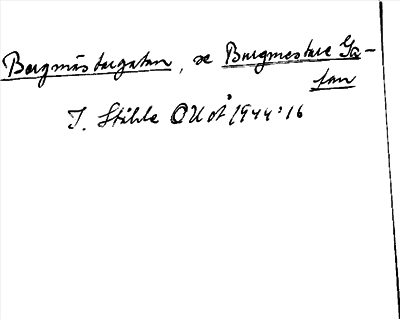 Borgmästargatan, se Borgmestare Ga-
tan
I. Ståhle OUoÅ 1944:16